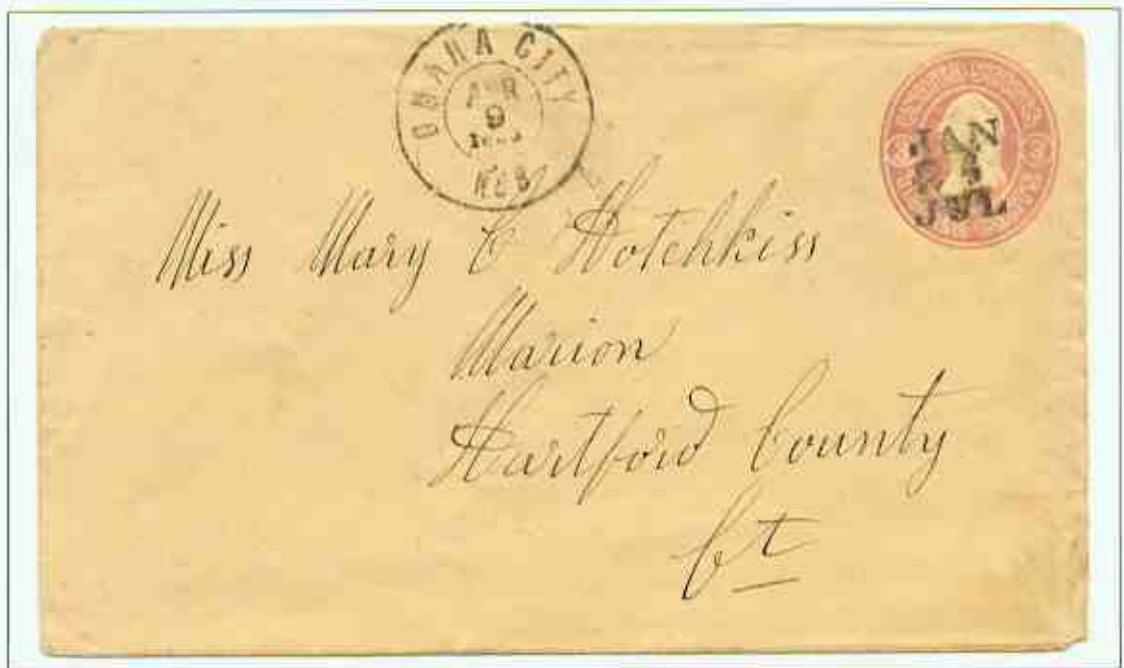 OMAHA CITY
APR
9
NEB
JAN
JUL
Miss Mary E Hotchkiss
Marion
Hartford County
Ct